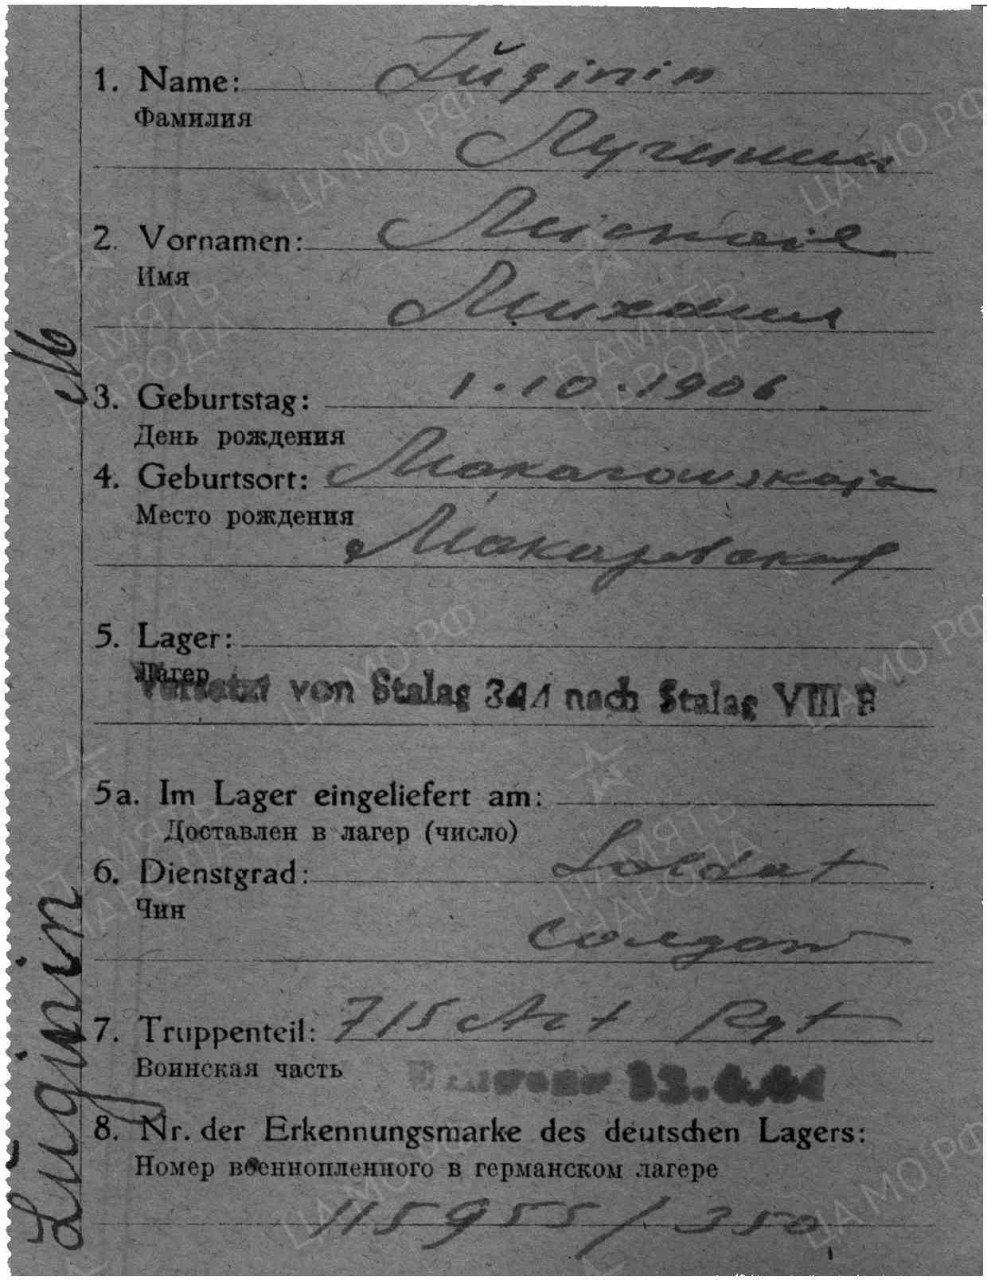 1. Name: Lŭginin
Фамилия
Лугинин
2. Vornamen: Michail
Имя
Михаил
3. Geburtstag: 1.10.1906
День рождения
4. Geburtsort: Makarowskaja
Место рождения
Макаровская
5. Lager:
Лагер
Versetzt von Stalag 344 nach Stalag VIII B
5a. Im Lager eingeliefert am:
Доставлен в лагер (число)
6. Dienstgrad: Soldat
Чин
Солдат
7. Truppenteil: 715 Art Rgt
Воинская часть
8. Nr. der Erkennungsmarke des deutschen Lagers:
Номер военнопленного в германском лагере
115955/350
Lŭginin M
ЦА МО РФ
ПАМЯТЬ
НАРОДА